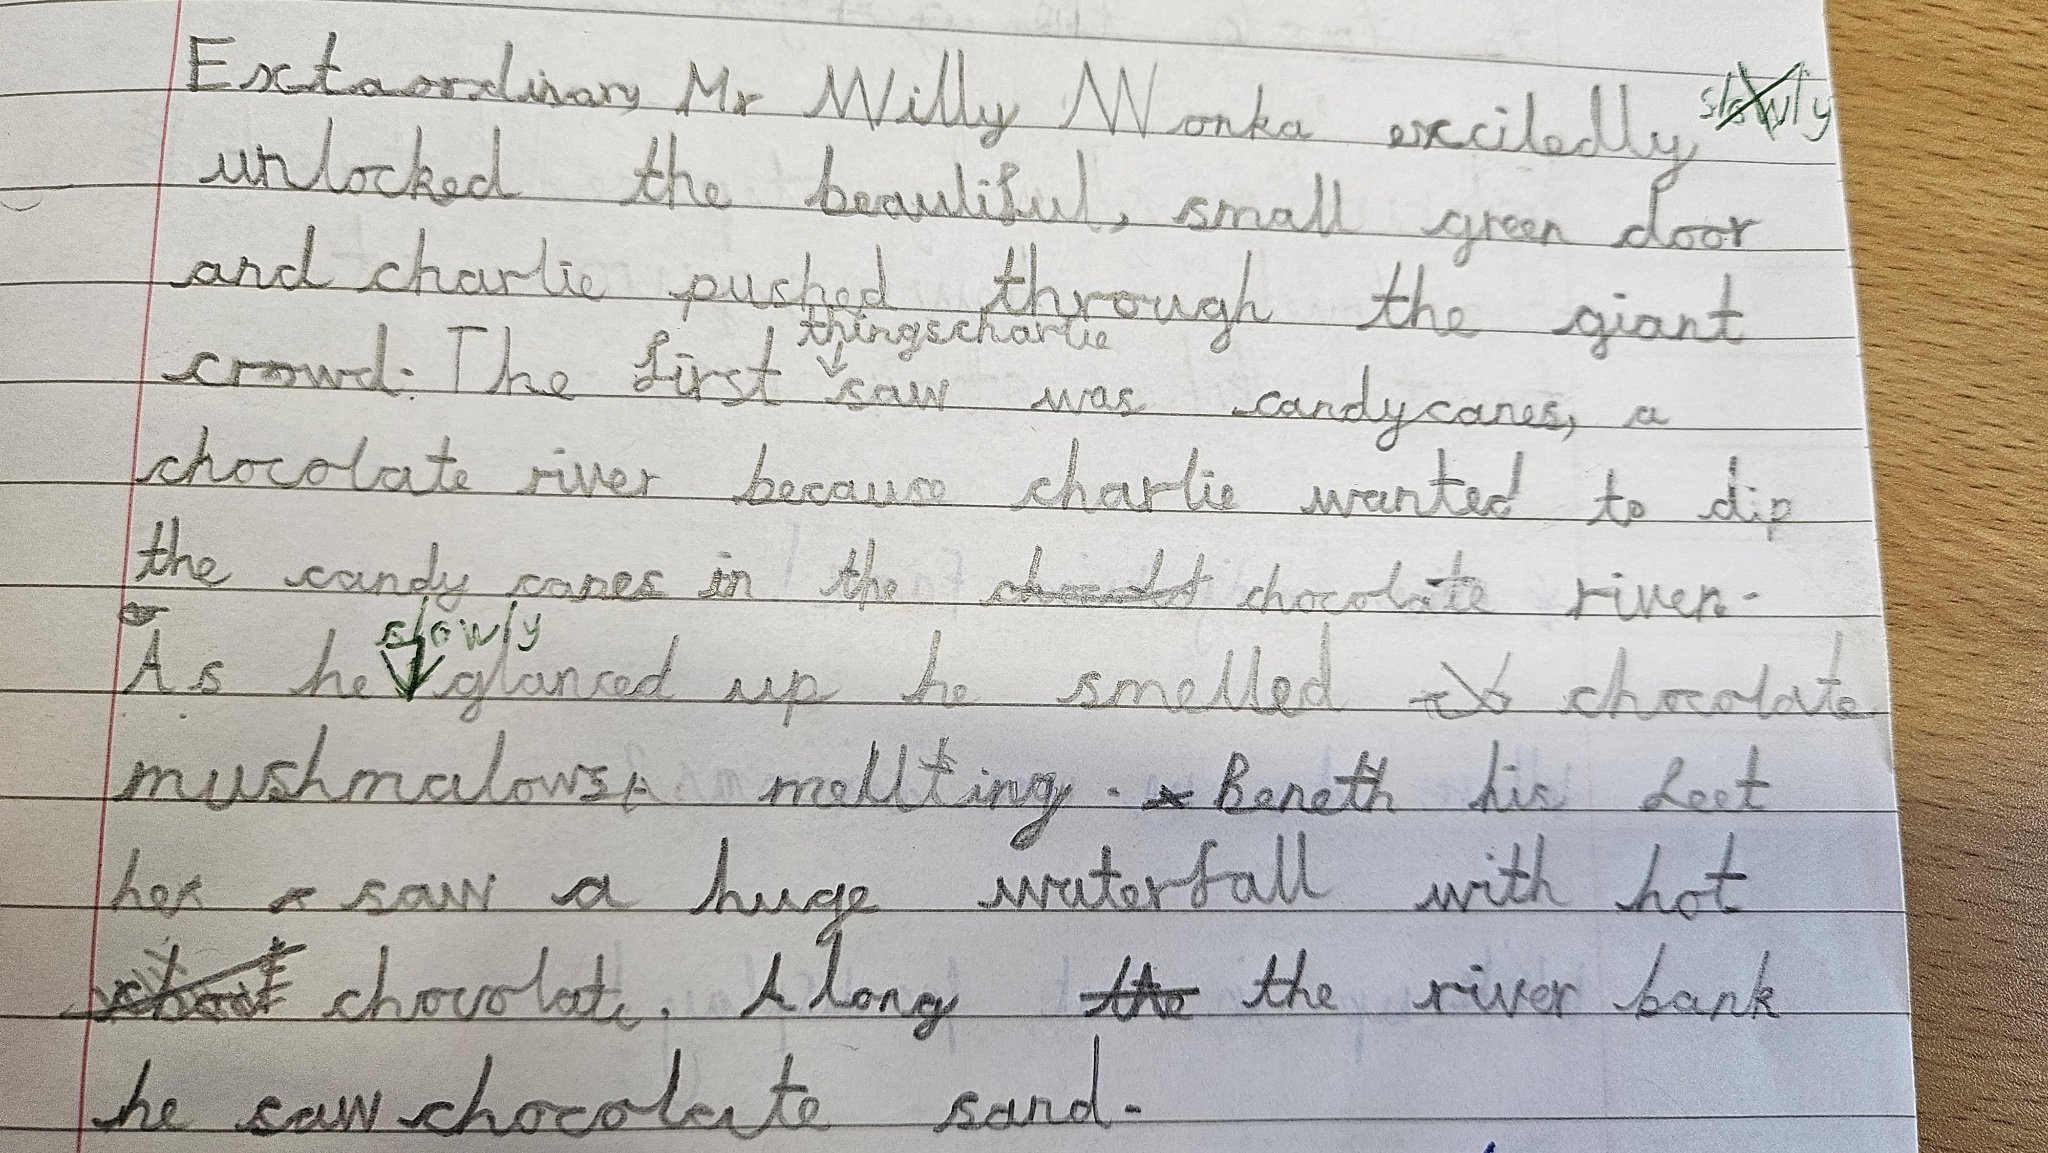 Extaordinary Mr Willy Wonka exciledly slowly
unlocked the beautiful, small green door
and charlie pushed through the giant
thingscharlie
crowd. The first saw was candycanes, a
chocolate river because charlie wanted to dip
the candy canes in the chocolate river.
slowly
As he glanced up he smelled chocolate
mushmalows mellting. Beneth his feet
he saw a huge waterfall with hot
chocolate. Along the the river bank
he saw chocolate sand.